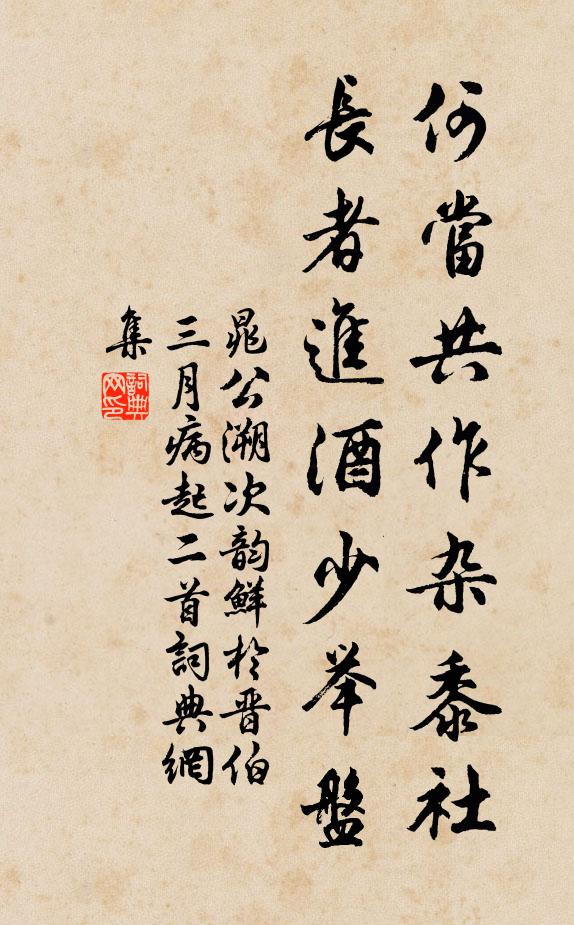 何當共作杂黍社
長者進酒少举盤
晁公溯次韵鮮於晋伯
三月病起二首詞典網
集
詞典
网印